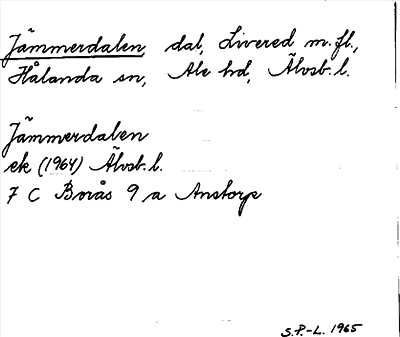 Jämmerdalen, dal, Livered m.fl.,
Hålanda sn, Ale hd, Älvsb. l.
Jämmerdalen
ek (1964) Älvsb. l.
7 C Borås 9 a Anstorp
S.P.-L. 1965